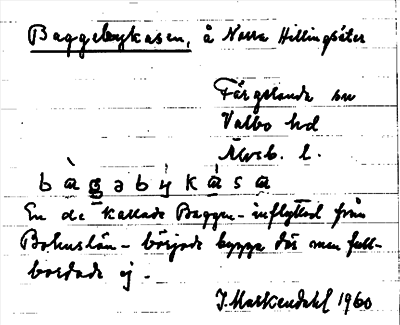 Baggebykasen, å Norra Hillingsäter
Färgelanda sn
Valbo hd
Älvsb. l.
bàgəbýkàsa
En de kallade Baggen - inflyttad från
Bohuslän - började bygga där men full-
bordade ej -
J. Markendahl 1960